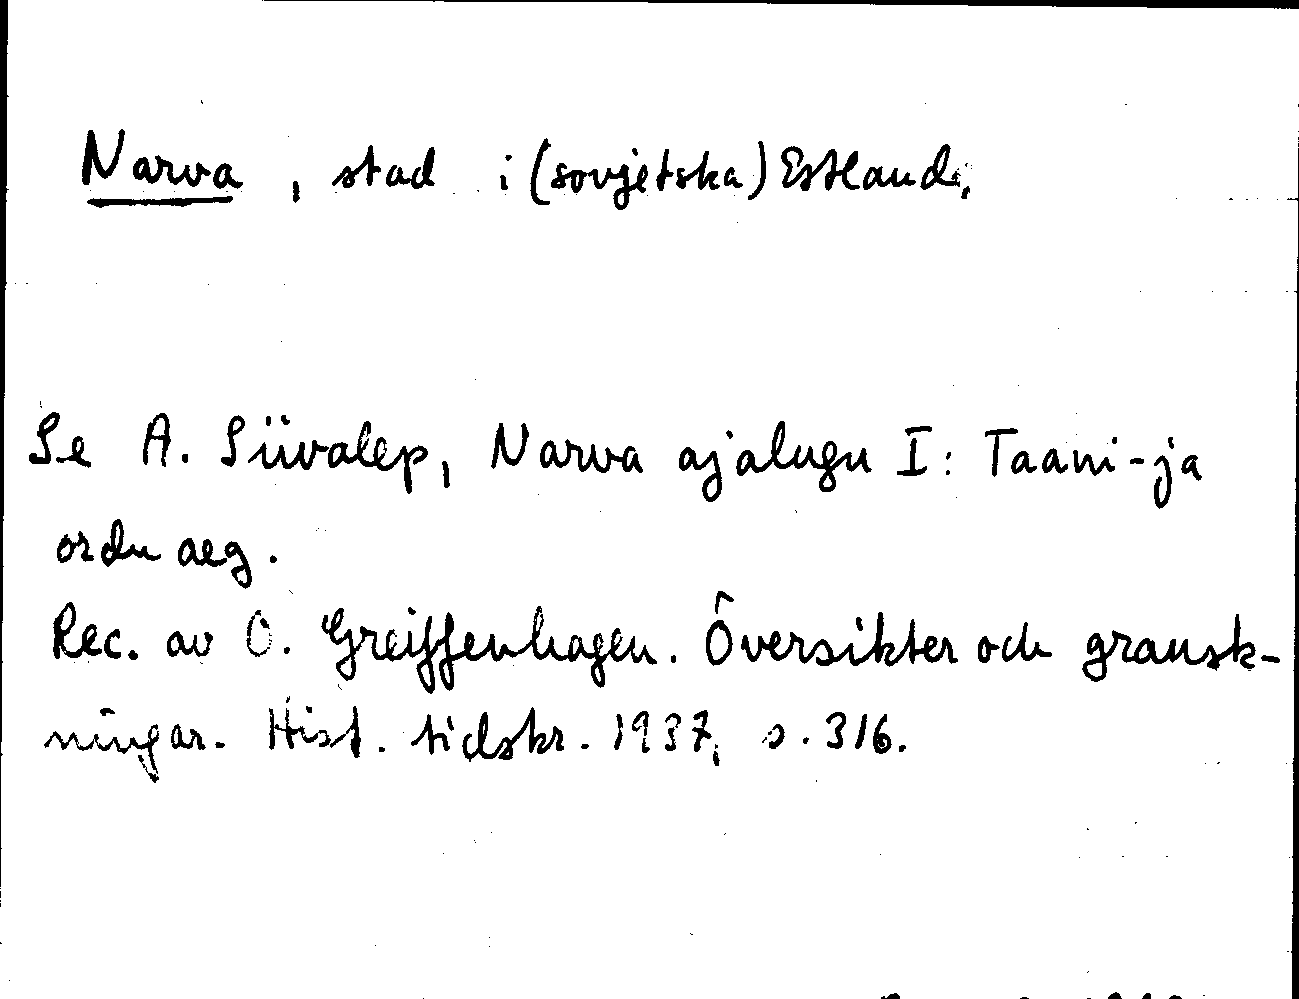 Narva, stad i (sovjetska) Estland.
Se A. Süvalep, Narva ajalugu I: Taani-ja
ordu aeg.
Rec. av O. Greiffenhagen. Översikter och gransk-
ningar. Hist. tidskr. 1937, s. 316.